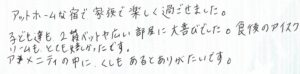 アットホームな宿で家族で楽しく過ごせました。
子ども達も2段ベットや広い部屋に大喜びでした。食後のアイスク
リームもとても嬉しかったです。
アメニティの中に、くしもあるとありがたいです。